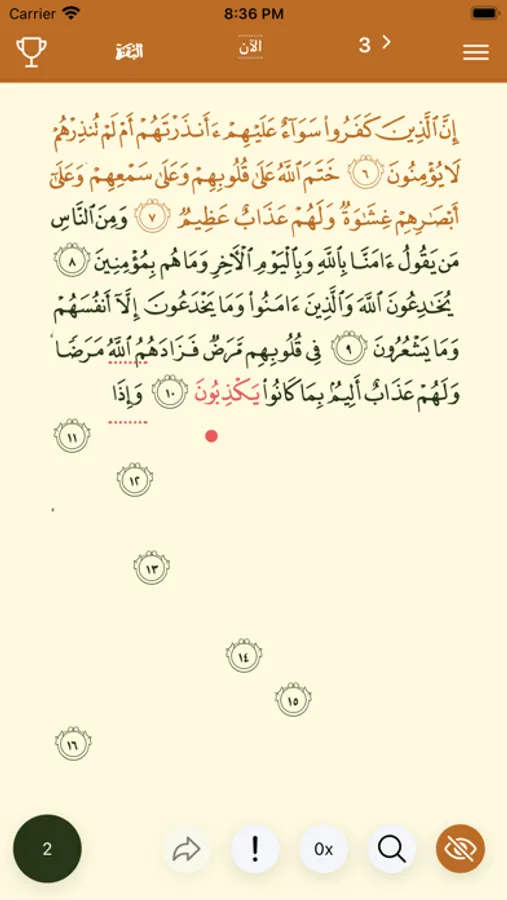 Carrier 8:36 PM
البقرة الآن 3
إِنَّ ٱلَّذِينَ كَفَرُوا۟ سَوَآءٌ عَلَيْهِمْ ءَأَنذَرْتَهُمْ أَمْ لَمْ تُنذِرْهُمْ
لَا يُؤْمِنُونَ ٦ خَتَمَ ٱللَّهُ عَلَىٰ قُلُوبِهِمْ وَعَلَىٰ سَمْعِهِمْ وَعَلَىٰٓ
أَبْصَٰرِهِمْ غِشَٰوَةٌ وَلَهُمْ عَذَابٌ عَظِيمٌ ٧ وَمِنَ ٱلنَّاسِ
مَن يَقُولُ ءَامَنَّا بِٱللَّهِ وَبِٱلْيَوْمِ ٱلْءَاخِرِ وَمَا هُم بِمُؤْمِنِينَ ٨
يُخَٰدِعُونَ ٱللَّهَ وَٱلَّذِينَ ءَامَنُوا۟ وَمَا يَخْدَعُونَ إِلَّآ أَنفُسَهُمْ
وَمَا يَشْعُرُونَ ٩ فِى قُلُوبِهِم مَّرَضٌ فَزَادَهُمُ ٱللَّهُ مَرَضًا
وَلَهُمْ عَذَابٌ أَلِيمٌۢ بِمَا كَانُوا۟ يَكْذِبُونَ ١٠ وَإِذَا
١١
١٢
١٣
١٤
١٥
١٦
2 ! 0x